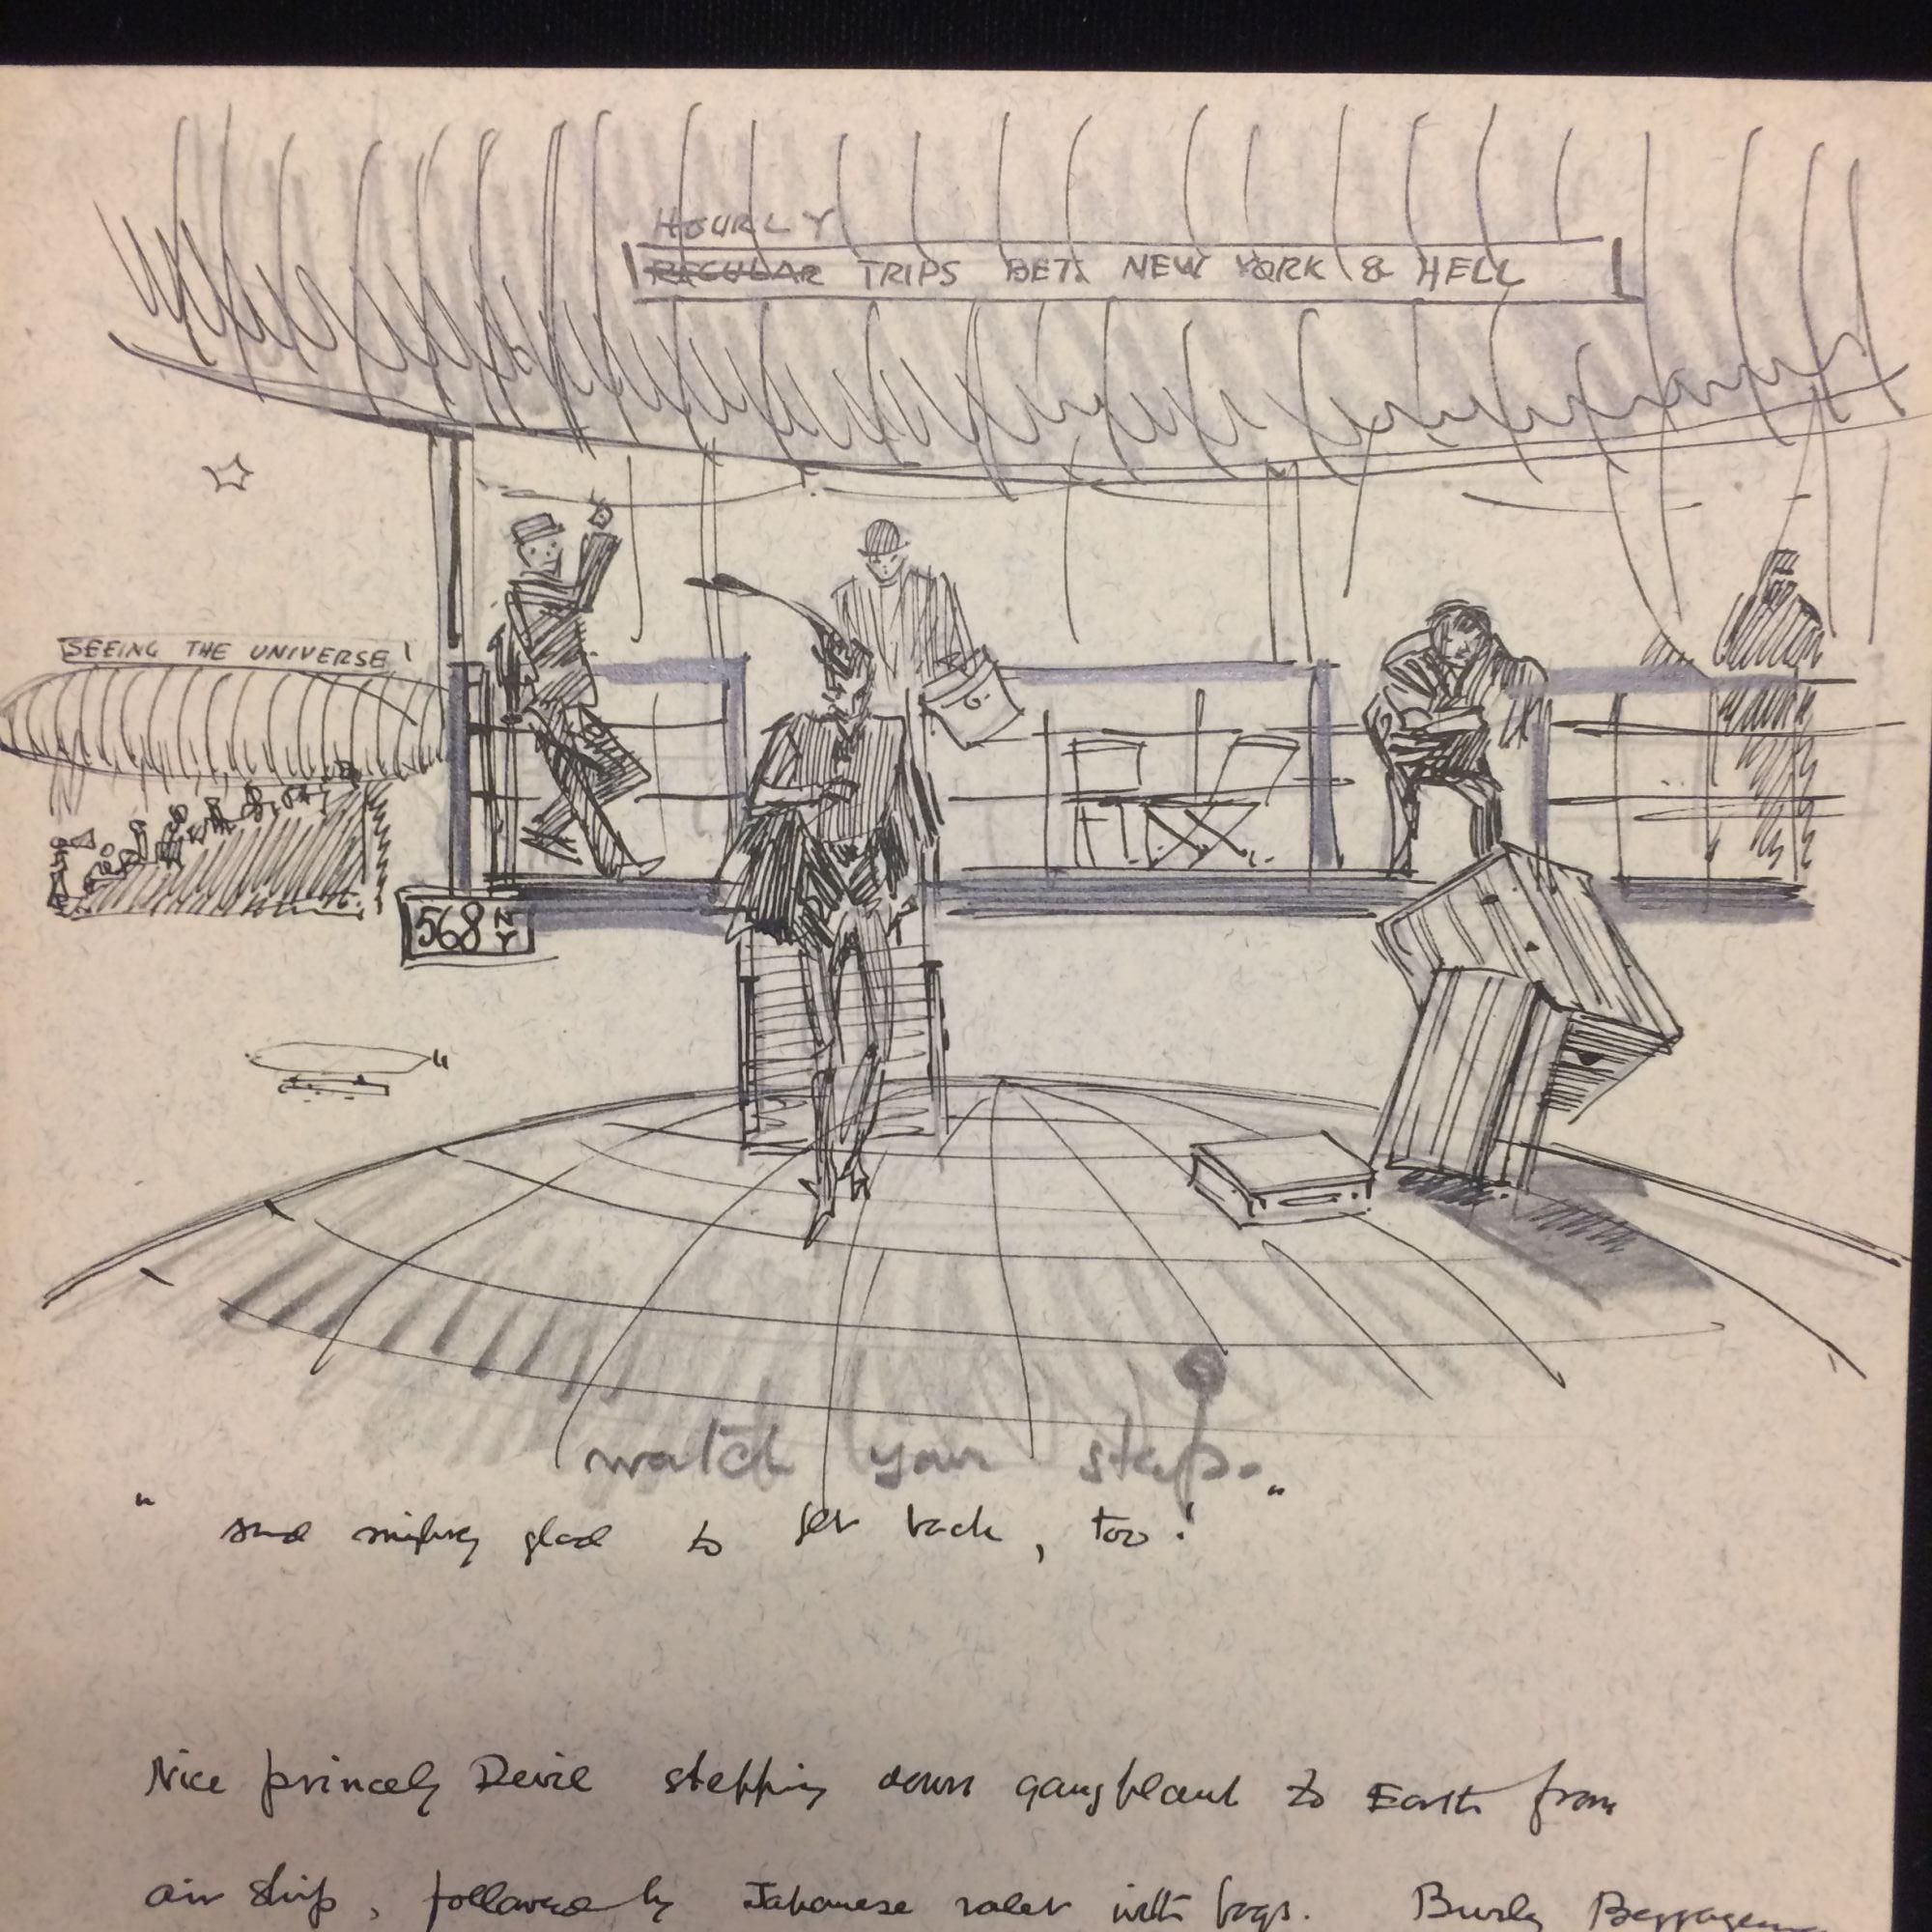 HOURLY
REGULAR TRIPS BET. NEW YORK & HELL
SEEING THE UNIVERSE
568 NY
watch your step."
" and mighty glad to get back, too!
Nice princely Devil stepping down gangplank to Earth from
air ship, followed by Japanese valet with bags. Burly Baggageman